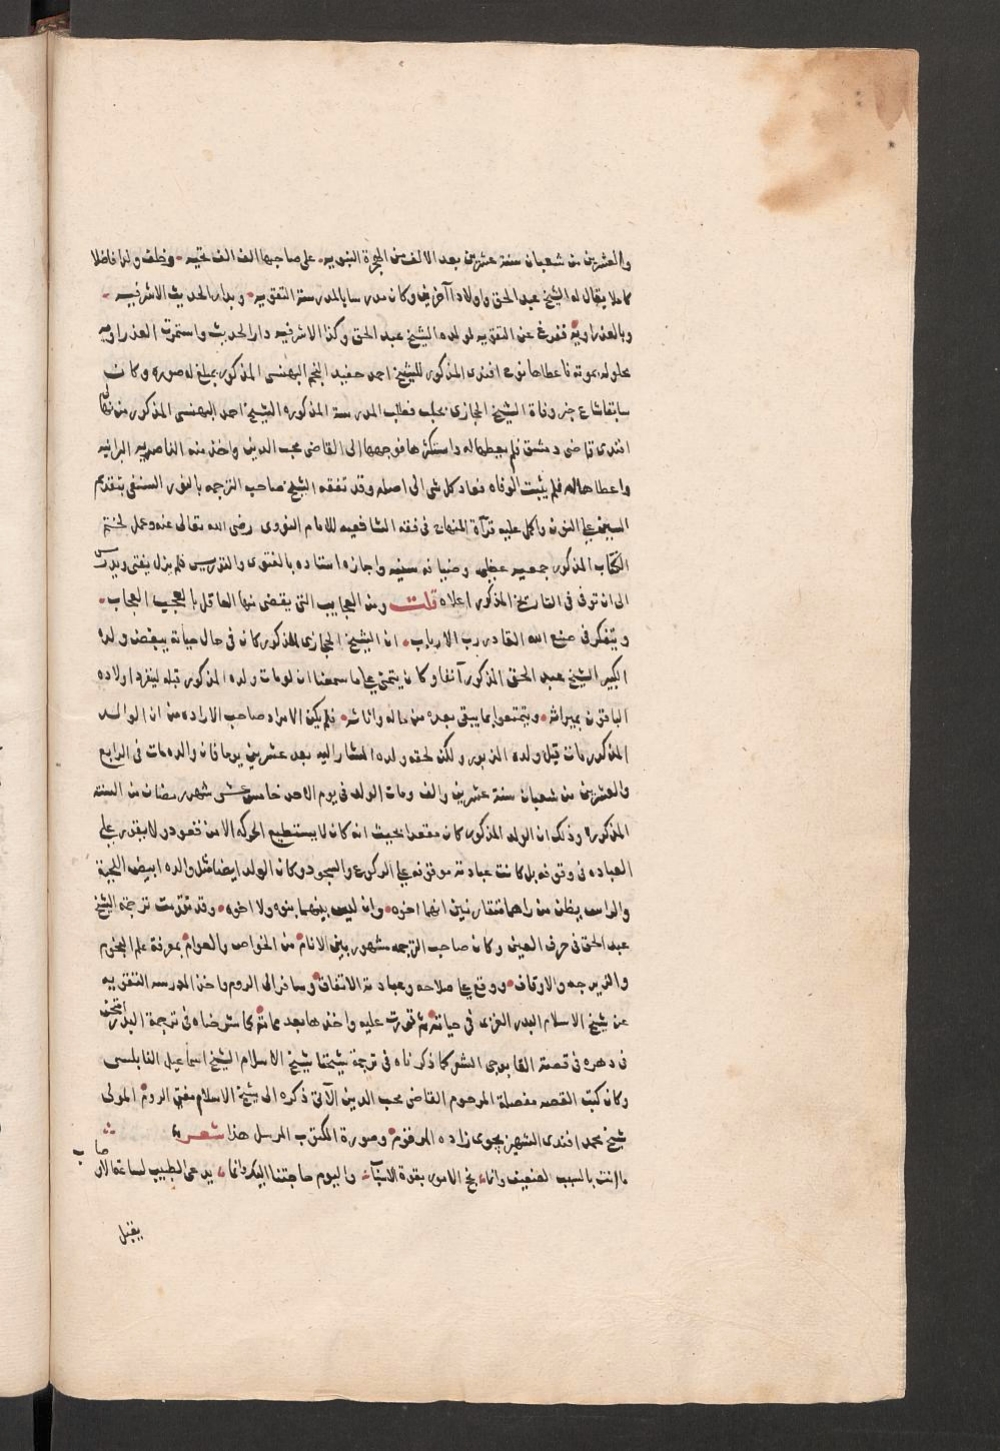 والعشرين من شعبان سنة عشرين بعد الالف من الهجرة النبويه على صاحبها الف الف تحيه وخلف ولدا فاضلا
كاملا يقال له الشيخ عبد الحق واولادا آخرين وكان مدرسا بالمدرسة التقويه وبدار الحديث الاشرفيه
وبالعذراويه ففرغ عن التقويه لولده الشيخ عبد الحق وكذا الاشرفيه دار الحديث واستمرت العذراويه
محلوله بموته فاعطاها نوح افندى المذكور للشيخ احمد حفيد النجم البهنسى المذكور بمبلغ له صوره وكان
سابقا شاع خبر وفاة الشيخ الحجازى بحلب فطلب المدرسة المذكوره الشيخ احمد البهنسى المذكور من
افندى قاضى دمشق فلم يعطها له واستكثرها فوجهها الى القاضى محب الدين واخذ منه الناصريه البرانيه
واعطاها له فلم يثبت الوفاه فعاد كل شى الى اصله وقد تفقه الشيخ صاحب الترجمه بالنور السنفى بتقديم
السين على النون واكمل عليه قرآة المنهاج فى فقه الشافعيه للامام النووى رضى الله تعالى عنه وعمل لختم
الكتاب المذكور جمعيه عظمى وضيافه سنيه واجازه استاده بالفتوى والتدريس فلم يزل يفتى ويدرس
الى ان توفى فى التاريخ المذكور اعلاه قلت ومن العجايب التى يقضى منها العاقل بالعجب العجاب
ويتفكر فى صنع الله القادر رب الارباب ان الشيخ الحجازى المذكور كان فى حال حياته يبغض ولده
الكبير الشيخ عبد الحق المذكور آنفا وكان يتمنى على ما سمعنا ان لو مات ولده المذكور قبله لينفرد اولاده
الباقون بميراثه ويتمتعوا بما يبقى بعده من ماله واثاثه فلم يكن الامراد صاحب الاراده من ان الوالد
المذكور مات قبل ولده المزبور ولكن لحقه ولده المشار اليه بعد عشرين يوما فان والده مات فى الرابع
والعشرين من شعبان سنة عشرين والف ومات الولد فى يوم الاحد خامس عشر شهر رمضان من السنة
المذكوره وذلك ان الولد المذكور كان مقعدا بحيث انه كان لا يستطيع الحركه الا من قعود ولا يقدر على
العباده فى وقوفه بل كانت عبادته موقوفه على الركوع والسجود وكان الولد ايضا مثل والده ابيض اللحية
والراس يظن من راهما متقارنين انهما اخوه وان ليس بينهما بنوه ولا اخوه وقد تقدمت ترجمة الشيخ
عبد الحق فى حرف العين وكان صاحب الترجمه مشهور بين الانام من الخواص والعوام بمعرفة علم النجوم
والزيرجه والاوفاق ووقع على صلاحه وعبادته الاتفاق وسافر الى الروم واخذ المدرسه التقويه
عن شيخ الاسلام البدر الغزى فى حياته ثم قررت عليه واخذها بعد مماته كما شرحناه فى ترجمة البدر
فى دهره فى قصة القابوجى الشعر كما ذكرناه فى ترجمة شيخنا شيخ الاسلام الشيخ اسماعيل النابلسى
وكان كتب القصه مفصلة المرحوم القاضى محب الدين الآتى ذكره الى شيخ الاسلام مفتى الروم المولى
شيخ محمد افندى الشهير بجوى زاده المرقوم وصورة المكتوب المرسل هذا شعر
ما زنت بالسبب الضعيف وانما نجح الامور بقوة الاسباب واليوم حاجتنا اليك وانما يدعى الطبيب لساعة الاوصاب
يقبل